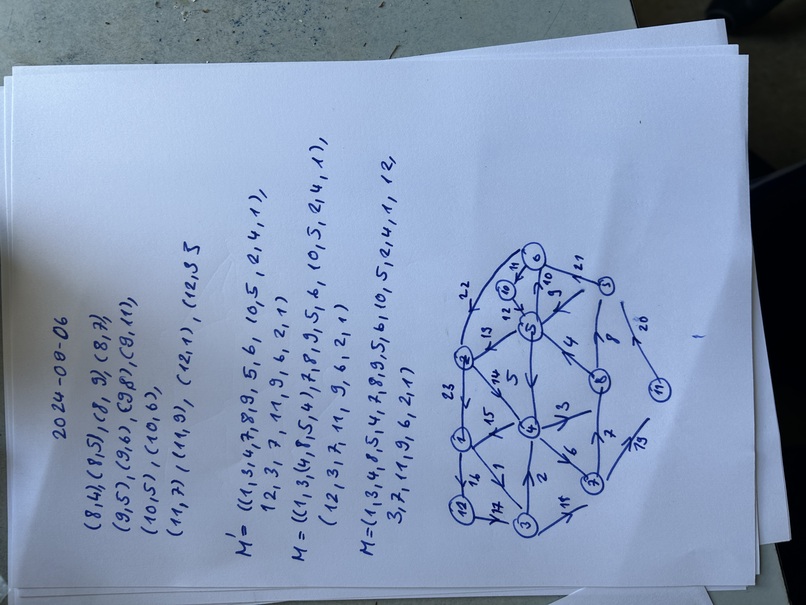 2024-09-06
(8,4),(8,5),(8,9),(8,7),
(9,5),(9,6),(9,8),(9,11),
(10,5),(10,6),
(11,7),(11,9),(12,1),(12,3)}
M' = ((1,3,4,7,8,9,5,6,10,5,2,4,1),
12,3,7,11,9,6,2,1)
M = ((1,3,(4,8,5,4),7,8,9,5,6,10,5,2,4,1),
(12,3,7,11,9,6,2,1)
M=(1,3,4,8,5,4,7,8,9,5,6,10,5,2,4,1,12,
3,7,11,9,6,2,1)
22
11
6
23
2
13
10
12
10
21
9
5
9
16
1
15
14
5
4
8
20
12
17
1
4
3
8
3
2
6
7
11
18
7
19